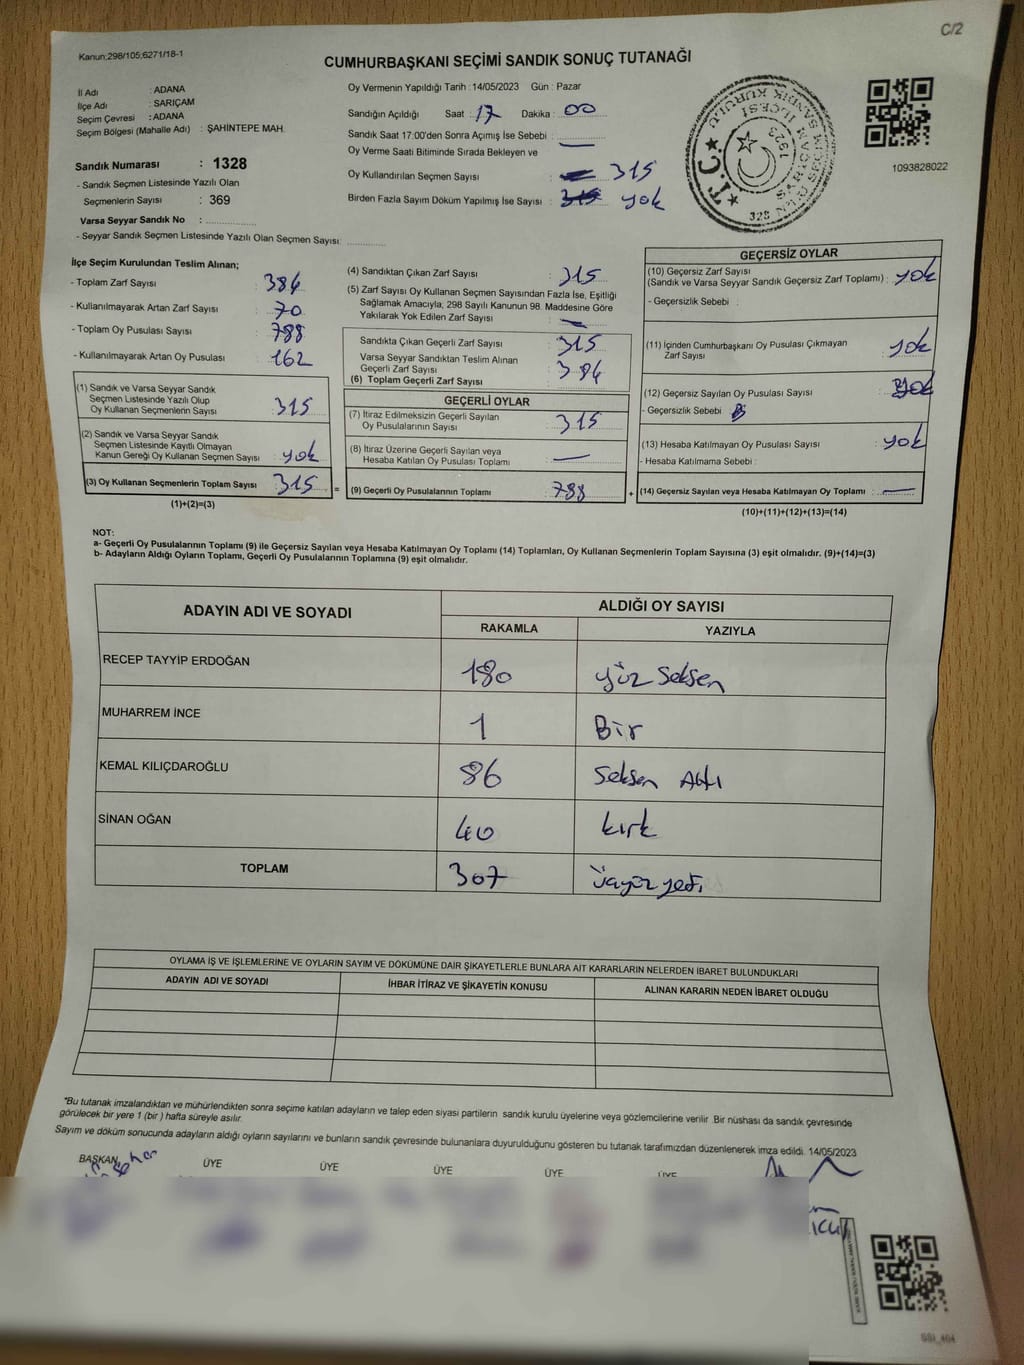 C/2
Kanun;298/105;6271/18-1
CUMHURBAŞKANI SEÇİMİ SANDIK SONUÇ TUTANAĞI
İl Adı : ADANA
İlçe Adı : SARIÇAM
Seçim Çevresi : ADANA
Seçim Bölgesi (Mahalle Adı) : ŞAHİNTEPE MAH.
Sandık Numarası : 1328
- Sandık Seçmen Listesinde Yazılı Olan
Seçmenlerin Sayısı : 369
Varsa Seyyar Sandık No :
- Seyyar Sandık Seçmen Listesinde Yazılı Olan Seçmen Sayısı:
Oy Vermenin Yapıldığı Tarih : 14/05/2023 Gün : Pazar
Sandığın Açıldığı Saat : 17 Dakika : 00
Sandık Saat 17:00'den Sonra Açımış İse Sebebi :
Oy Verme Saati Bitiminde Sırada Bekleyen ve
Oy Kullandırılan Seçmen Sayısı : 315
Birden Fazla Sayım Döküm Yapılmış İse Sayısı : 315 yok
T.C.
SARIÇAM İLÇESİ
SANDIK KURULU
1923
328
1093828022
İlçe Seçim Kurulundan Teslim Alınan;
- Toplam Zarf Sayısı : 384
- Kullanılmayarak Artan Zarf Sayısı : 70
- Toplam Oy Pusulası Sayısı : 788
- Kullanılmayarak Artan Oy Pusulası : 162
(1) Sandık ve Varsa Seyyar Sandık
Seçmen Listesinde Yazılı Olup
Oy Kullanan Seçmenlerin Sayısı : 315
(2) Sandık ve Varsa Seyyar Sandık
Seçmen Listesinde Kayıtlı Olmayan
Kanun Gereği Oy Kullanan Seçmen Sayısı : yok
(3) Oy Kullanan Seçmenlerin Toplam Sayısı : 315 =
(1)+(2)=(3)
(4) Sandıktan Çıkan Zarf Sayısı : 315
(5) Zarf Sayısı Oy Kullanan Seçmen Sayısından Fazla İse, Eşitliği
Sağlamak Amacıyla; 298 Sayılı Kanunun 98. Maddesine Göre
Yakılarak Yok Edilen Zarf Sayısı :
Sandıkta Çıkan Geçerli Zarf Sayısı : 315
Varsa Seyyar Sandıktan Teslim Alınan
Geçerli Zarf Sayısı : 384
(6) Toplam Geçerli Zarf Sayısı
GEÇERLİ OYLAR
(7) İtiraz Edilmeksizin Geçerli Sayılan
Oy Pusulalarının Sayısı : 315
(8) İtiraz Üzerine Geçerli Sayılan veya
Hesaba Katılan Oy Pusulası Toplamı :
(9) Geçerli Oy Pusulalarının Toplamı : 788 +
GEÇERSİZ OYLAR
(10) Geçersiz Zarf Sayısı
(Sandık ve Varsa Seyyar Sandık Geçersiz Zarf Toplamı) : yok
- Geçersizlik Sebebi :
(11) İçinden Cumhurbaşkanı Oy Pusulası Çıkmayan
Zarf Sayısı : yok
(12) Geçersiz Sayılan Oy Pusulası Sayısı : yok
- Geçersizlik Sebebi
(13) Hesaba Katılmayan Oy Pusulası Sayısı : yok
- Hesaba Katılmama Sebebi :
(14) Geçersiz Sayılan veya Hesaba Katılmayan Oy Toplamı :
(10)+(11)+(12)+(13)=(14)
NOT:
a- Geçerli Oy Pusulalarının Toplamı (9) ile Geçersiz Sayılan veya Hesaba Katılmayan Oy Toplamı (14) Toplamları, Oy Kullanan Seçmenlerin Toplam Sayısına (3) eşit olmalıdır. (9)+(14)=(3)
b- Adayların Aldığı Oyların Toplamı, Geçerli Oy Pusulalarının Toplamına (9) eşit olmalıdır.
ADAYIN ADI VE SOYADI ALDIĞI OY SAYISI
RAKAMLA YAZIYLA
RECEP TAYYİP ERDOĞAN 180 yüz seksen
MUHARREM İNCE 1 Bir
KEMAL KILIÇDAROĞLU 86 Seksen Altı
SİNAN OĞAN 40 kırk
TOPLAM 307 üçyüz yedi
OYLAMA İŞ VE İŞLEMLERİNE VE OYLARIN SAYIM VE DÖKÜMÜNE DAİR ŞİKAYETLERLE BUNLARA AİT KARARLARIN NELERDEN İBARET BULUNDUKLARI
ADAYIN ADI VE SOYADI İHBAR İTİRAZ VE ŞİKAYETİN KONUSU ALINAN KARARIN NEDEN İBARET OLDUĞU
*Bu tutanak imzalandıktan ve mühürlendikten sonra seçime katılan adayların ve talep eden siyasi partilerin sandık kurulu üyelerine veya gözlemcilerine verilir. Bir nüshası da sandık çevresinde
görülecek bir yere 1 (bir) hafta süreyle asılır.
Sayım ve döküm sonucunda adayların aldığı oyların sayılarını ve bunların sandık çevresinde bulunanlara duyurulduğunu gösteren bu tutanak tarafımızdan düzenlenerek imza edildi. 14/05/2023
BAŞKAN ÜYE ÜYE ÜYE ÜYE ÜYE